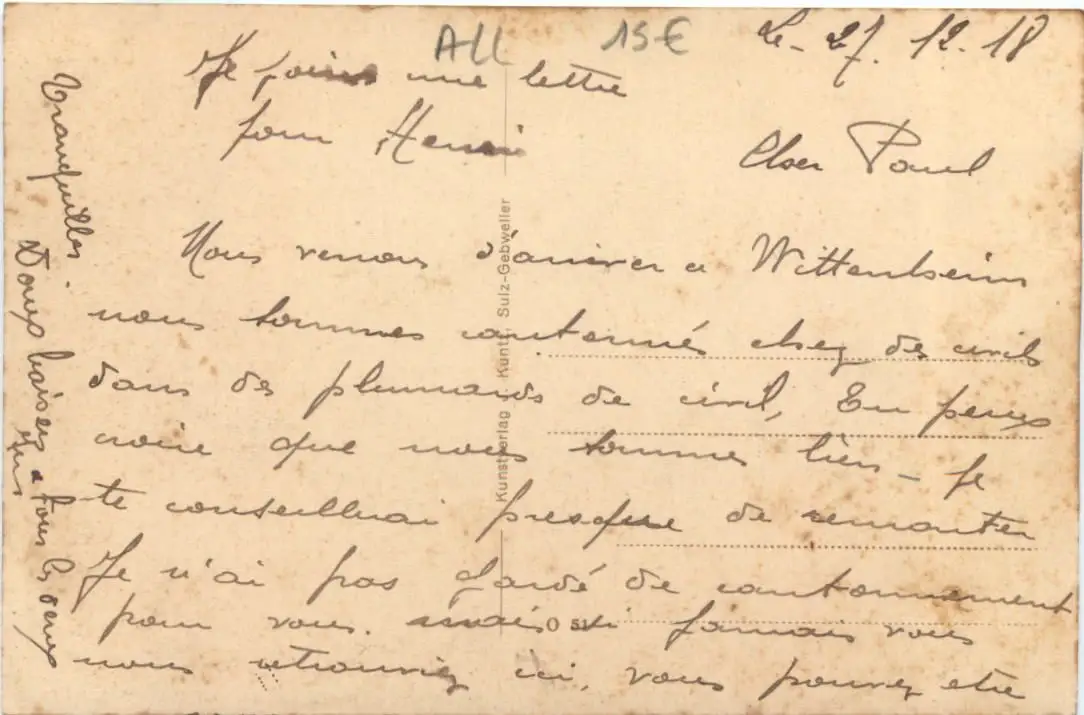 All 15€
Le - 27. 12. 18
Je joins une lettre
pour Henri
Cher Paul
Nous venons d'arriver a Wittenheim
nous sommes cantonnés chez des civils
dans des plumards de civil, Tu peux
croire que nous sommes bien - Je
te conseillerai presque de remonter
Je n'ai pas gardé de cantonnement
pour vous. mais si jamais vous
nous retrouviez ici, vous pouvez etre
Tranquilles
Doux baisers a tous les deux
Kunstverlag Kuntz, Sulz-Gebweiler
O 51